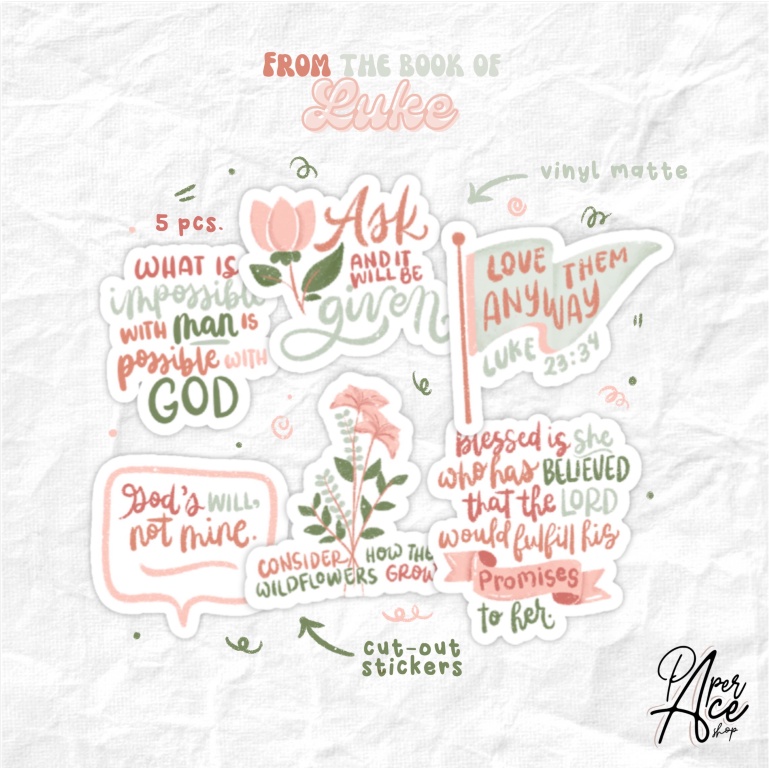 FROM THE BOOK OF
Luke
vinyl matte
5 pcs.
WHAT IS
impossible
WITH man IS
possible WITH
GOD
Ask
AND IT
WILL BE
given
LOVE THEM
ANYWAY
LUKE 23:34
God's WILL,
not mine.
CONSIDER HOW THE
WILDFLOWERS GROW
Blessed is she
who has BELIEVED
that the LORD
would fulfill his
Promises
to her.
cut-out
stickers
PAper
Ace
shop